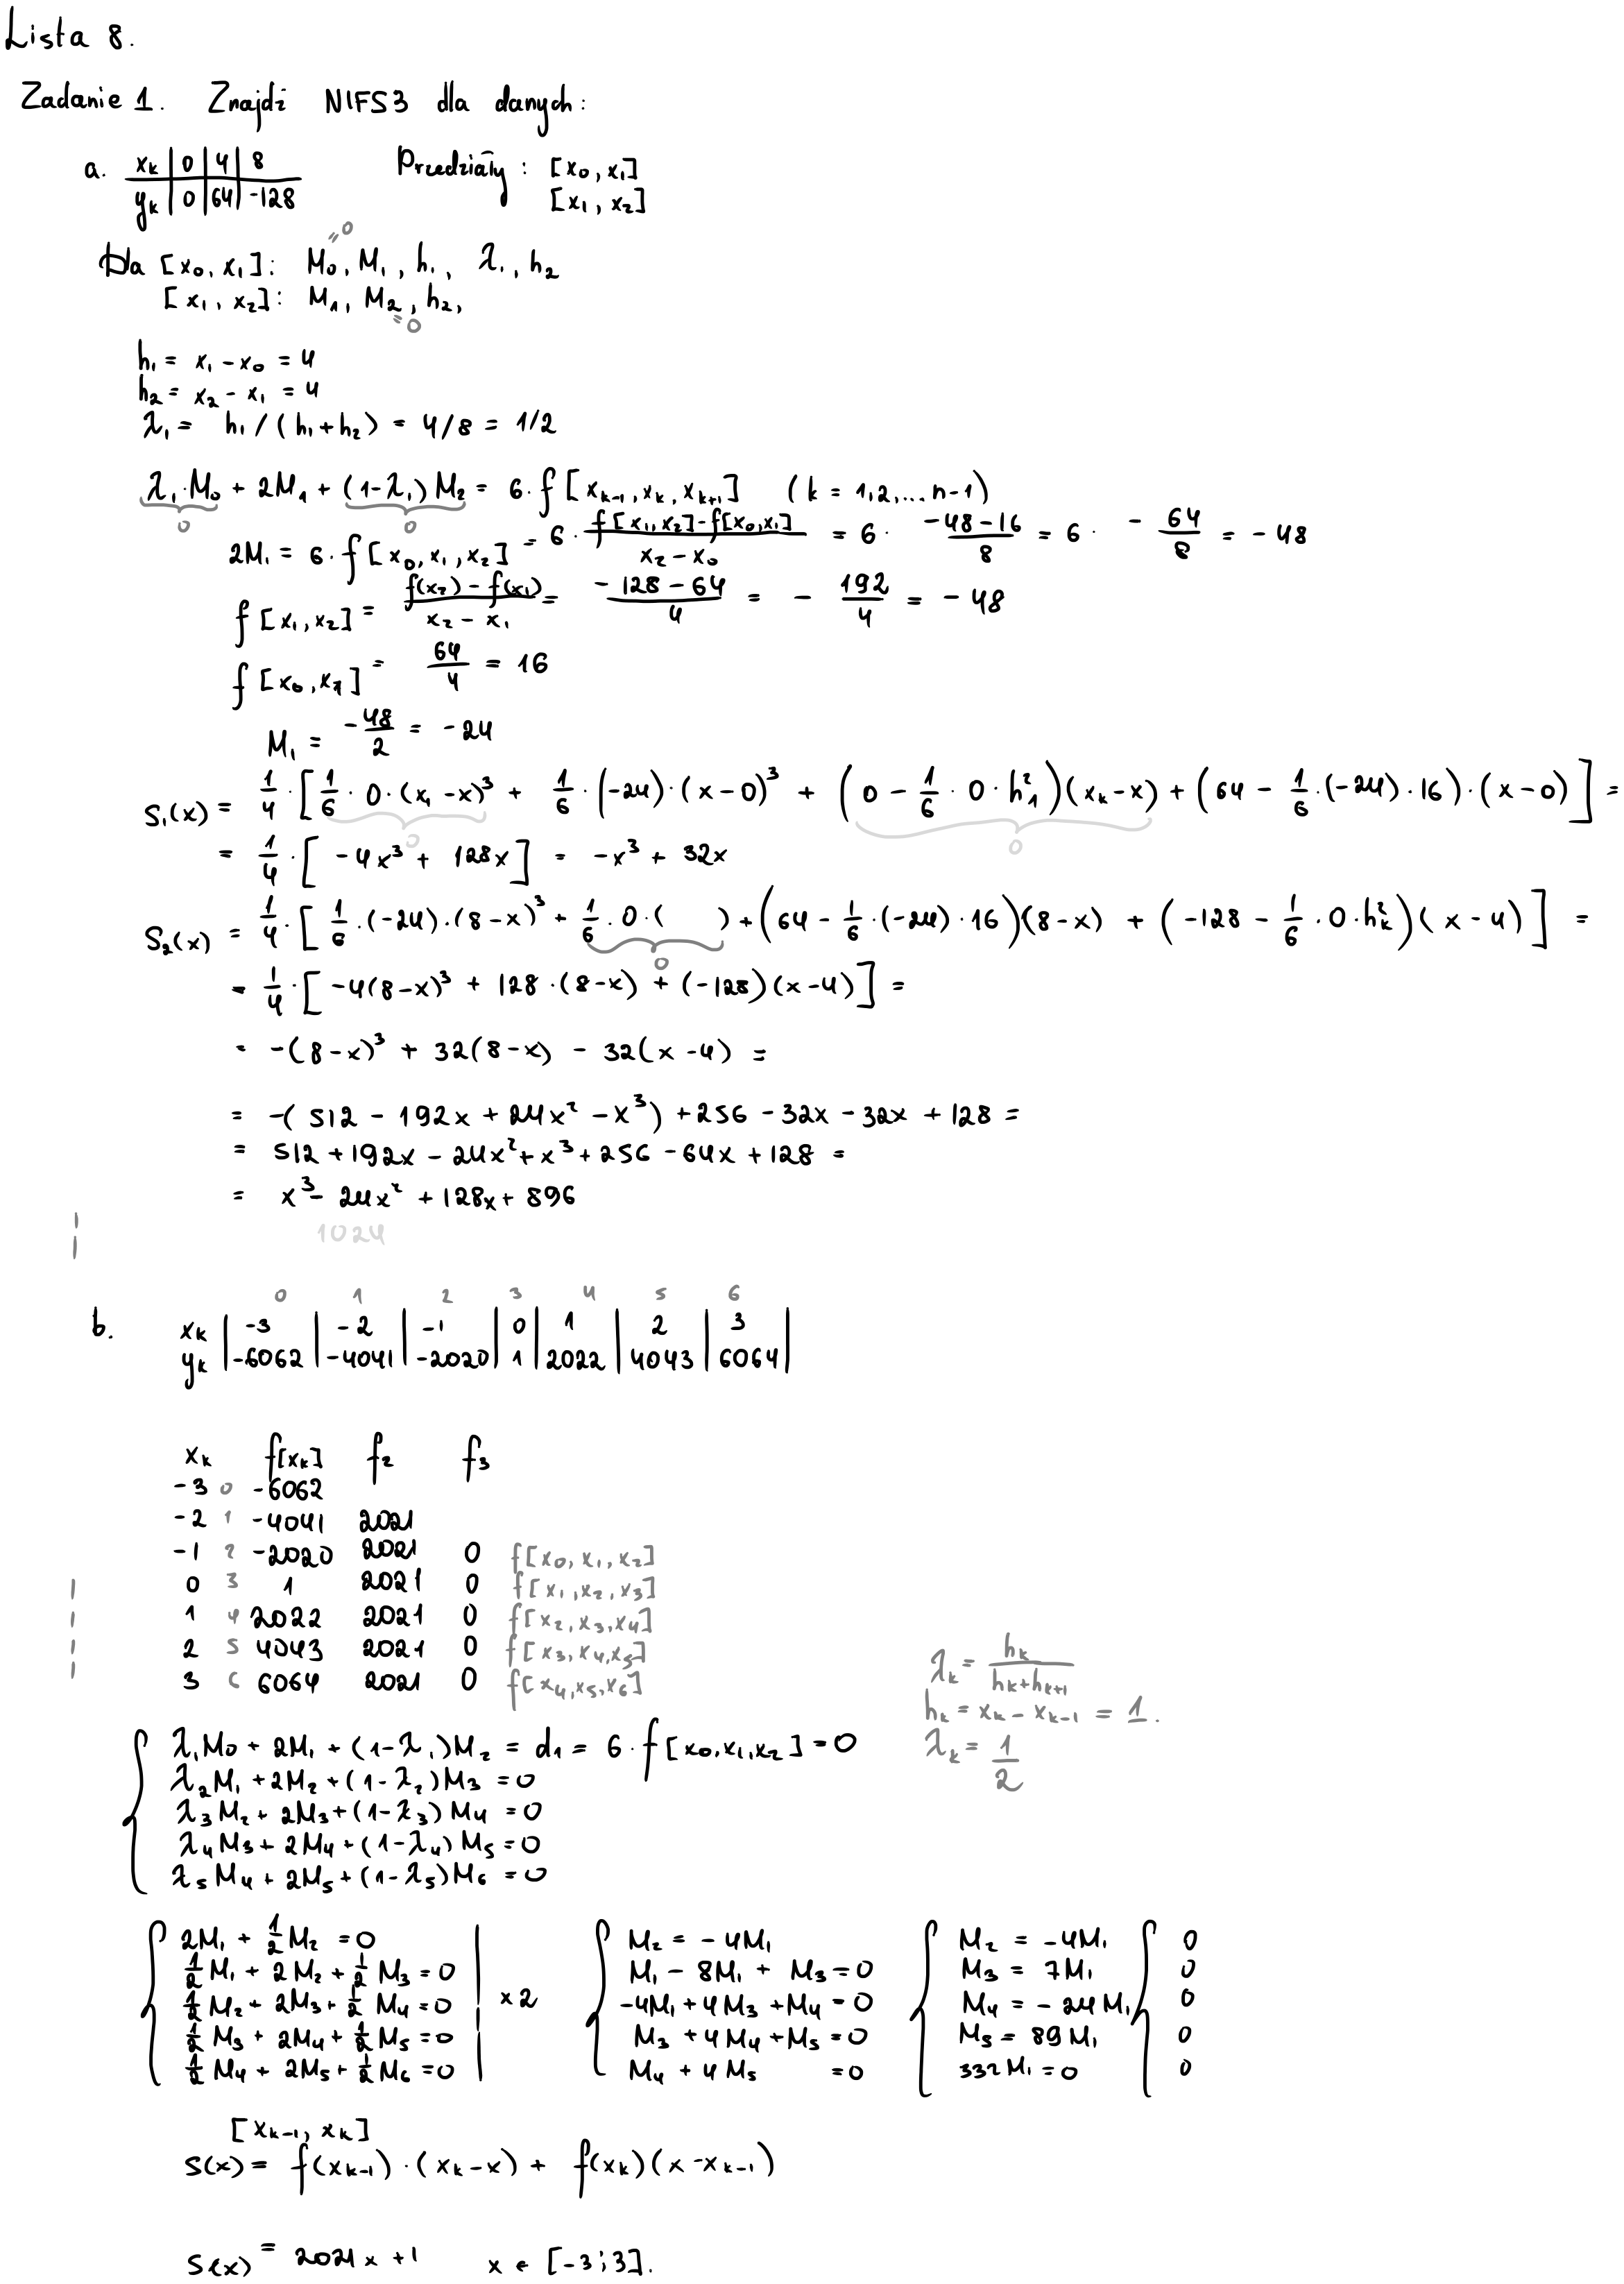 Lista 8.
Zadanie 1. Znajdź NIFS3 dla danych:
a. xₖ | 0 | 4 | 8
yₖ | 0 | 64 | -128
Przedziały: [x₀, x₁]
[x₁, x₂]
=0
Dla [x₀, x₁]: M₀, M₁, h₁, λ₁, h₂
[x₁, x₂]: M₁, M₂, h₂,
=0
h₁ = x₁ - x₀ = 4
h₂ = x₂ - x₁ = 4
λ₁ = h₁ / (h₁ + h₂) = 4/8 = 1/2
λ₁·M₀ + 2M₁ + (1-λ₁)M₂ = 6·f[xₖ₋₁, xₖ, xₖ₊₁] (k = 1,2,...n-1)
0 0
2M₁ = 6·f[x₀, x₁, x₂] = 6·(f[x₁,x₂]-f[x₀,x₁])/(x₂-x₀) = 6·(-48-16)/8 = 6·-64/8 = -48
f[x₁, x₂] = (f(x₂)-f(x₁))/(x₂-x₁) = (-128-64)/4 = -192/4 = -48
f[x₀, x₁] = 64/4 = 16
M₁ = -48/2 = -24
S₁(x) = 1/4·[1/6·0·(x₁-x)³ + 1/6·(-24)·(x-0)³ + (0-1/6·0·h₁²)(xₖ-x) + (64-1/6·(-24)·16)·(x-0)] =
0 0
= 1/4·[-4x³ + 128x] = -x³ + 32x
S₂(x) = 1/4·[1/6·(-24)·(8-x)³ + 1/6·0·( ) + (64-1/6·(-24)·16)(8-x) + (-128-1/6·0·hₖ²)(x-4)] =
0
= 1/4·[-4(8-x)³ + 128·(8-x) + (-128)(x-4)] =
= -(8-x)³ + 32(8-x) - 32(x-4) =
= -(512 - 192x + 24x² - x³) + 256 - 32x - 32x + 128 =
= 512 + 192x - 24x² + x³ + 256 - 64x + 128 =
= x³ - 24x² + 128x + 896
1024
0 1 2 3 4 5 6
b. xₖ | -3 | -2 | -1 | 0 | 1 | 2 | 3 |
yₖ | -6062 | -4041 | -2020 | 1 | 2022 | 4043 | 6064 |
xₖ f[xₖ] f₂ f₃
-3 0 -6062
-2 1 -4041 2021
-1 2 -2020 2021 0 f[x₀, x₁, x₂]
0 3 1 2021 0 f[x₁, x₂, x₃]
1 4 2022 2021 0 f[x₂, x₃, x₄]
2 5 4043 2021 0 f[x₃, x₄, x₅]
3 6 6064 2021 0 f[x₄, x₅, x₆]
λₖ = hₖ/(hₖ+hₖ₊₁)
hₖ = xₖ - xₖ₋₁ = 1.
λₖ = 1/2
λ₁M₀ + 2M₁ + (1-λ₁)M₂ = d₁ = 6·f[x₀,x₁,x₂] = 0
λ₂M₁ + 2M₂ + (1-λ₂)M₃ = 0
λ₃M₂ + 2M₃ + (1-λ₃)M₄ = 0
λ₄M₃ + 2M₄ + (1-λ₄)M₅ = 0
λ₅M₄ + 2M₅ + (1-λ₅)M₆ = 0
2M₁ + 1/2M₂ = 0 | M₂ = -4M₁ M₂ = -4M₁ 0
1/2M₁ + 2M₂ + 1/2M₃ = 0 | M₁ - 8M₁ + M₃ = 0 M₃ = 7M₁ 0
1/2M₂ + 2M₃ + 1/2M₄ = 0 | ×2 -4M₁ + 4M₃ + M₄ = 0 M₄ = -24M₁ 0
1/2M₃ + 2M₄ + 1/2M₅ = 0 | M₃ + 4M₄ + M₅ = 0 M₅ = 89M₁ 0
1/2M₄ + 2M₅ + 1/2M₆ = 0 | M₄ + 4M₅ = 0 332M₁ = 0 0
[xₖ₋₁, xₖ]
S(x) = f(xₖ₋₁)·(xₖ-x) + f(xₖ)(x-xₖ₋₁)
S(x) = 2021x + 1 x ∈ [-3;3].